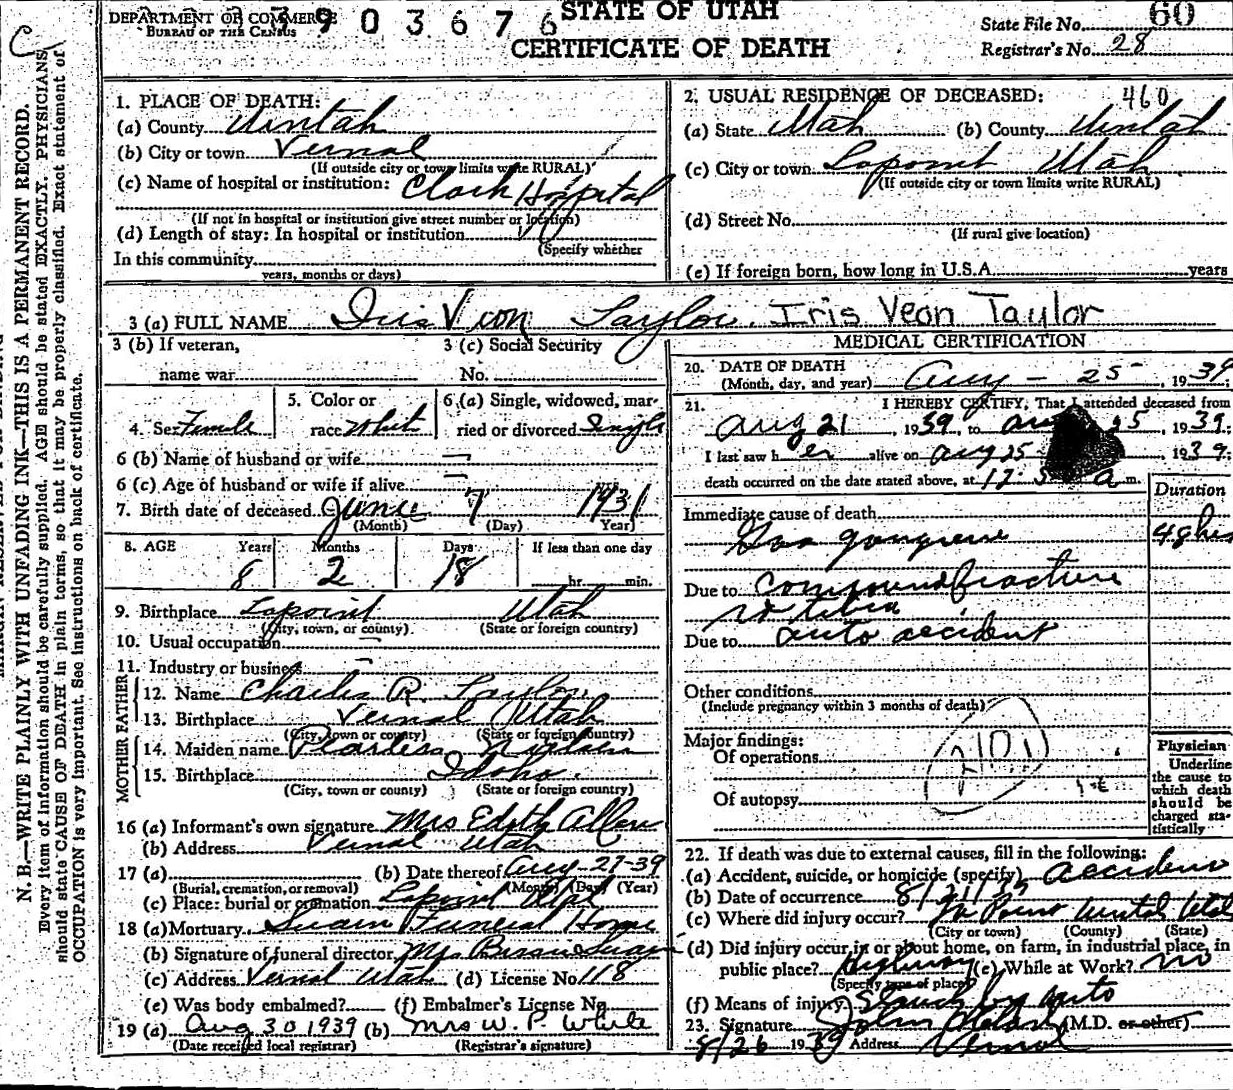 C
DEPARTMENT OF COMMERCE
BUREAU OF THE CENSUS
3903676
STATE OF UTAH
CERTIFICATE OF DEATH
State File No. 60
Registrar's No. 28
N. B.—WRITE PLAINLY WITH UNFADING INK—THIS IS A PERMANENT RECORD.
Every item of information should be carefully supplied. AGE should be stated EXACTLY. PHYSICIANS
should state CAUSE OF DEATH in plain terms, so that it may be properly classified. Exact statement of
OCCUPATION is very important. See instructions on back of certificate.
1. PLACE OF DEATH:
(a) County Uintah
(b) City or town Vernal
(If outside city or town limits write RURAL)
(c) Name of hospital or institution: Clark Hospital
(If not in hospital or institution give street number or location)
(d) Length of stay: In hospital or institution
(Specify whether
In this community
years, months or days)
2. USUAL RESIDENCE OF DECEASED: 460
(a) State Utah (b) County Uintah
(c) City or town Lapoint Utah
(If outside city or town limits write RURAL)
(d) Street No.
(If rural give location)
(e) If foreign born, how long in U.S.A. years
3 (a) FULL NAME Iris Veon Taylor. Iris Veon Taylor
3 (b) If veteran,
name war
3 (c) Social Security
No.
4. Sex Female
5. Color or
race White
6. (a) Single, widowed, mar-
ried or divorced Single
6 (b) Name of husband or wife —
6 (c) Age of husband or wife if alive — yrs.
7. Birth date of deceased June 7 1931
(Month) (Day) Year)
8. AGE Years Months Days If less than one day
8 2 18 hr. min.
9. Birthplace Lapoint Utah
(City, town, or county) (State or foreign country)
10. Usual occupation —
11. Industry or business —
FATHER
12. Name Charles R. Taylor
13. Birthplace Vernal Utah
(City, town or county) (State or foreign country)
MOTHER
14. Maiden name
15. Birthplace Idaho.
(City, town or county) (State or foreign country)
16 (a) Informant's own signature Mrs Edith Allen
(b) Address Vernal Utah
17 (a) (b) Date thereof Aug-27-39
(Burial, cremation, or removal) (Month) (Day) (Year)
(c) Place: burial or cremation Lapoint Utah
18 (a) Mortuary Swain Funeral Home
(b) Signature of funeral director Mrs Bessie Swain
(c) Address Vernal Utah (d) License No 118
(e) Was body embalmed? (f) Embalmer's License No
19 (a) Aug 30 1939 (b) Mrs W. P. White
(Date received local registrar) (Registrar's signature)
MEDICAL CERTIFICATION
20. DATE OF DEATH
(Month, day, and year) Aug - 25 - , 1939;
21. I HEREBY CERTIFY, That I attended deceased from
Aug 21, 1939, to Aug 25, 1939;
I last saw her alive on Aug 25 1939;
death occurred on the date stated above, at 12: a m.
Duration
Immediate cause of death
Gas gangrene 48 hrs
Due to compound fracture
rt tibia
Due to auto accident
Other conditions
(Include pregnancy within 3 months of death)
Major findings:
Of operations
210
Of autopsy
Physician
Underline
the cause to
which death
should be
charged sta-
tistically
22. If death was due to external causes, fill in the following:
(a) Accident, suicide, or homicide (specify) Accident
(b) Date of occurrence 8/21/39
(c) Where did injury occur? La Point Uintah Utah
(City or town) (County) (State)
(d) Did injury occur in or about home, on farm, in industrial place, in
public place? Highway (e) While at Work? no
(Specify type of place)
(f) Means of injury Struck by auto
23. Signature (M.D. or other)
8/26 1939 Address Vernal